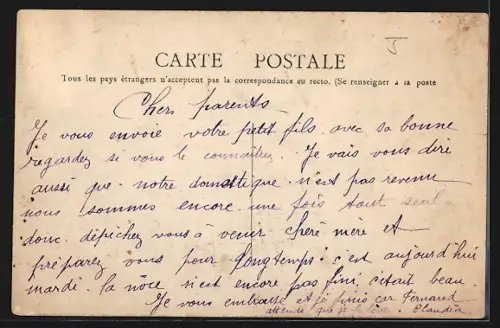 5
CARTE POSTALE
Tous les pays étrangers n'acceptent pas la correspondance au recto. (Se renseigner à la poste
Chers parents
Je vous envoie votre petit fils avec sa bonne
regardez si vous le connaitrez. Je vais vous dire
aussi que notre domestique n'est pas revenu
nous sommes encore une fois tout seul
donc dépichez vous à venir chère mère et
préparez vous pour longtemps. c'est aujourd'hui
mardi. la noce n'est encore pas fini, c'était beau.
Je vous embrasse et je finis car Fernand
attends que je le . Claudia